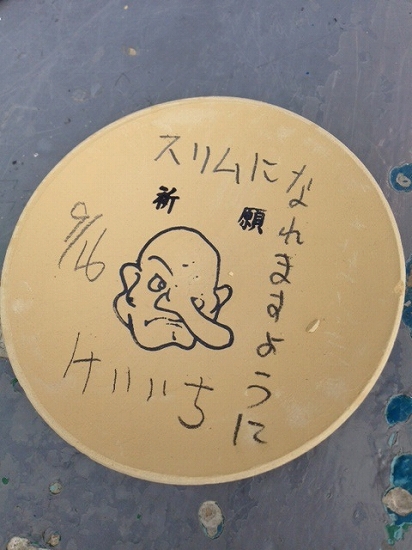 スリムになれますように
祈願
9/16
けいいち